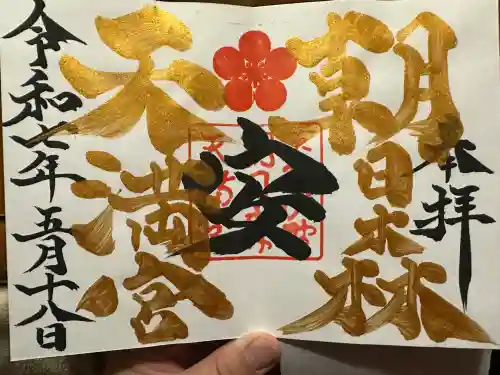 奉拝
朝日森
安
天満宮
令和七年五月十八日